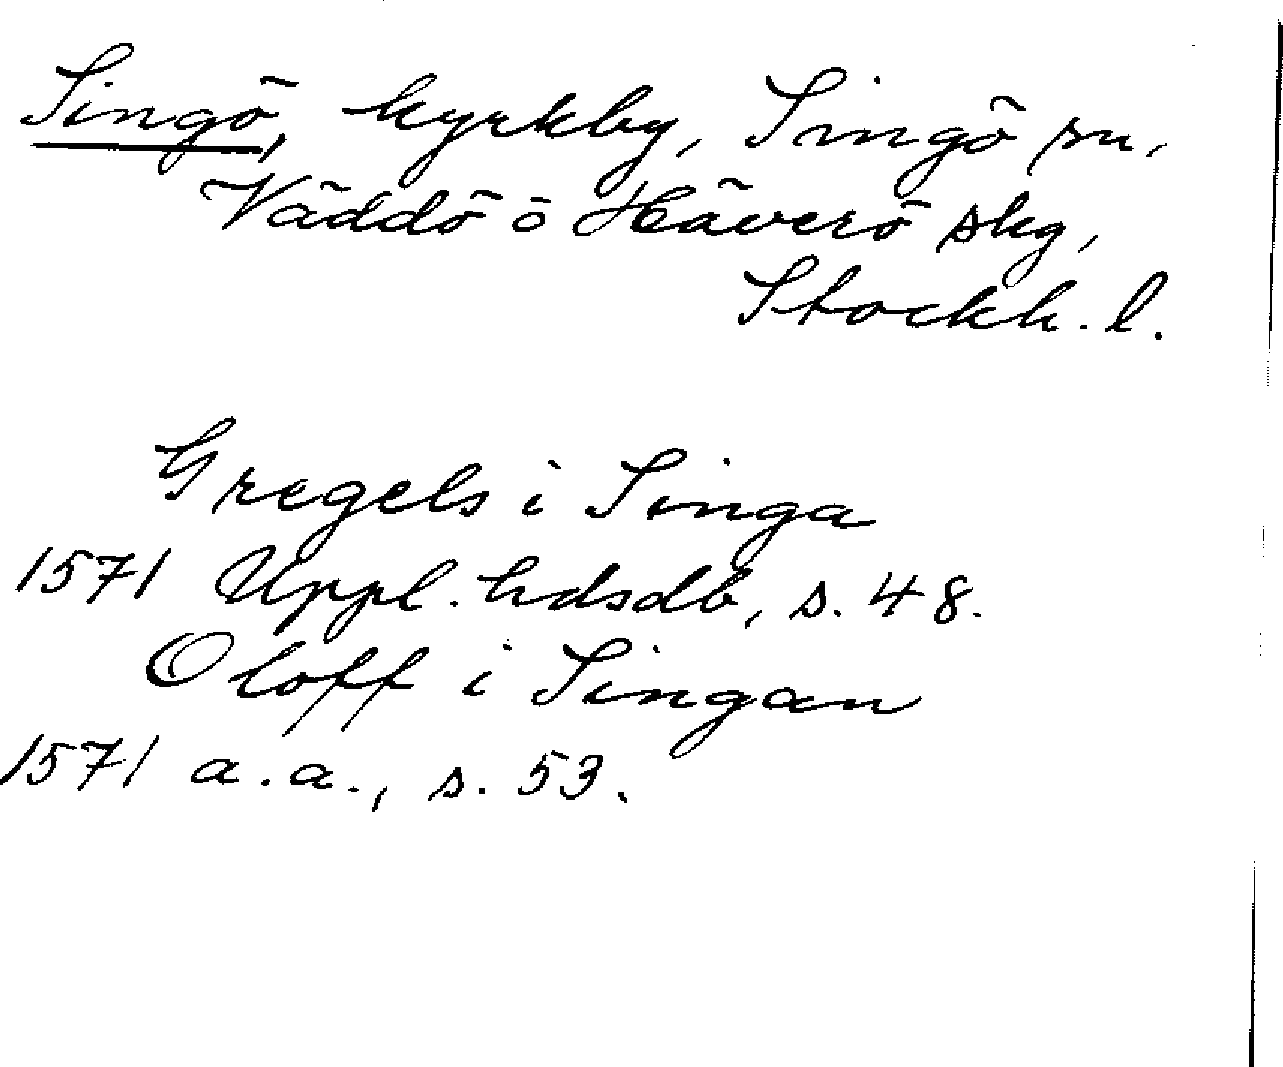 Singö, kyrkby, Singö sn,
Väddö o Häverö skg,
Stockh. l.
Gregels i Singa
1571 Uppl. hdsdb, s. 48.
Oloff i Singan
1571 a.a., s. 53.